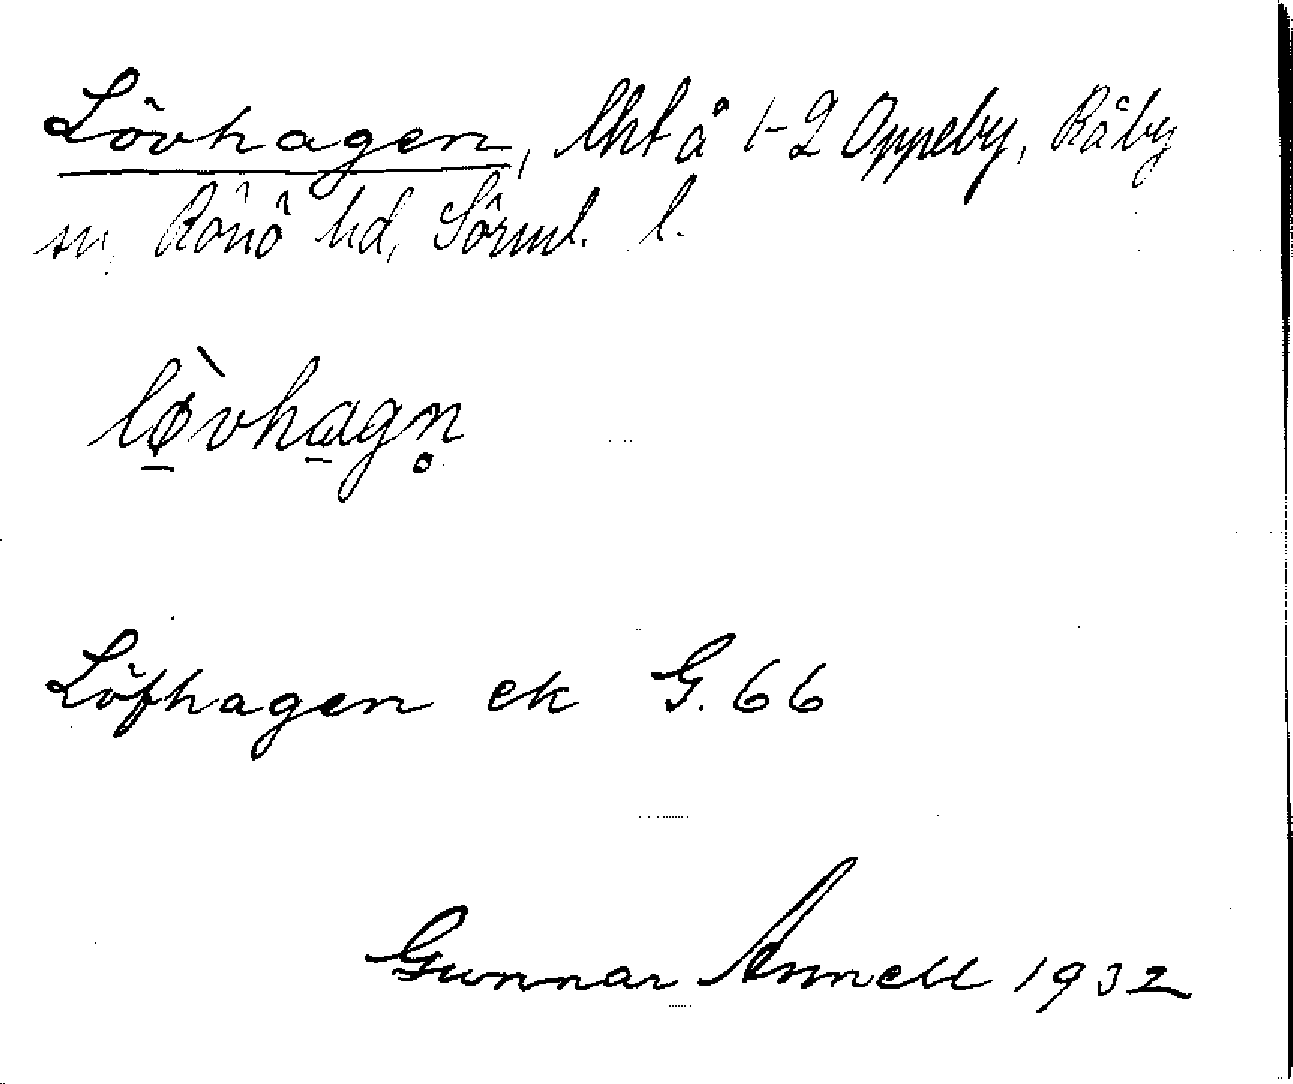 Lövhagen, lht å 1-2 Oppeby, Råby
sn, Rönö hd, Sörml. l.
lø̱̀vha̱gn̥
Löfhagen ek G. 66
Gunnar Annell 1932